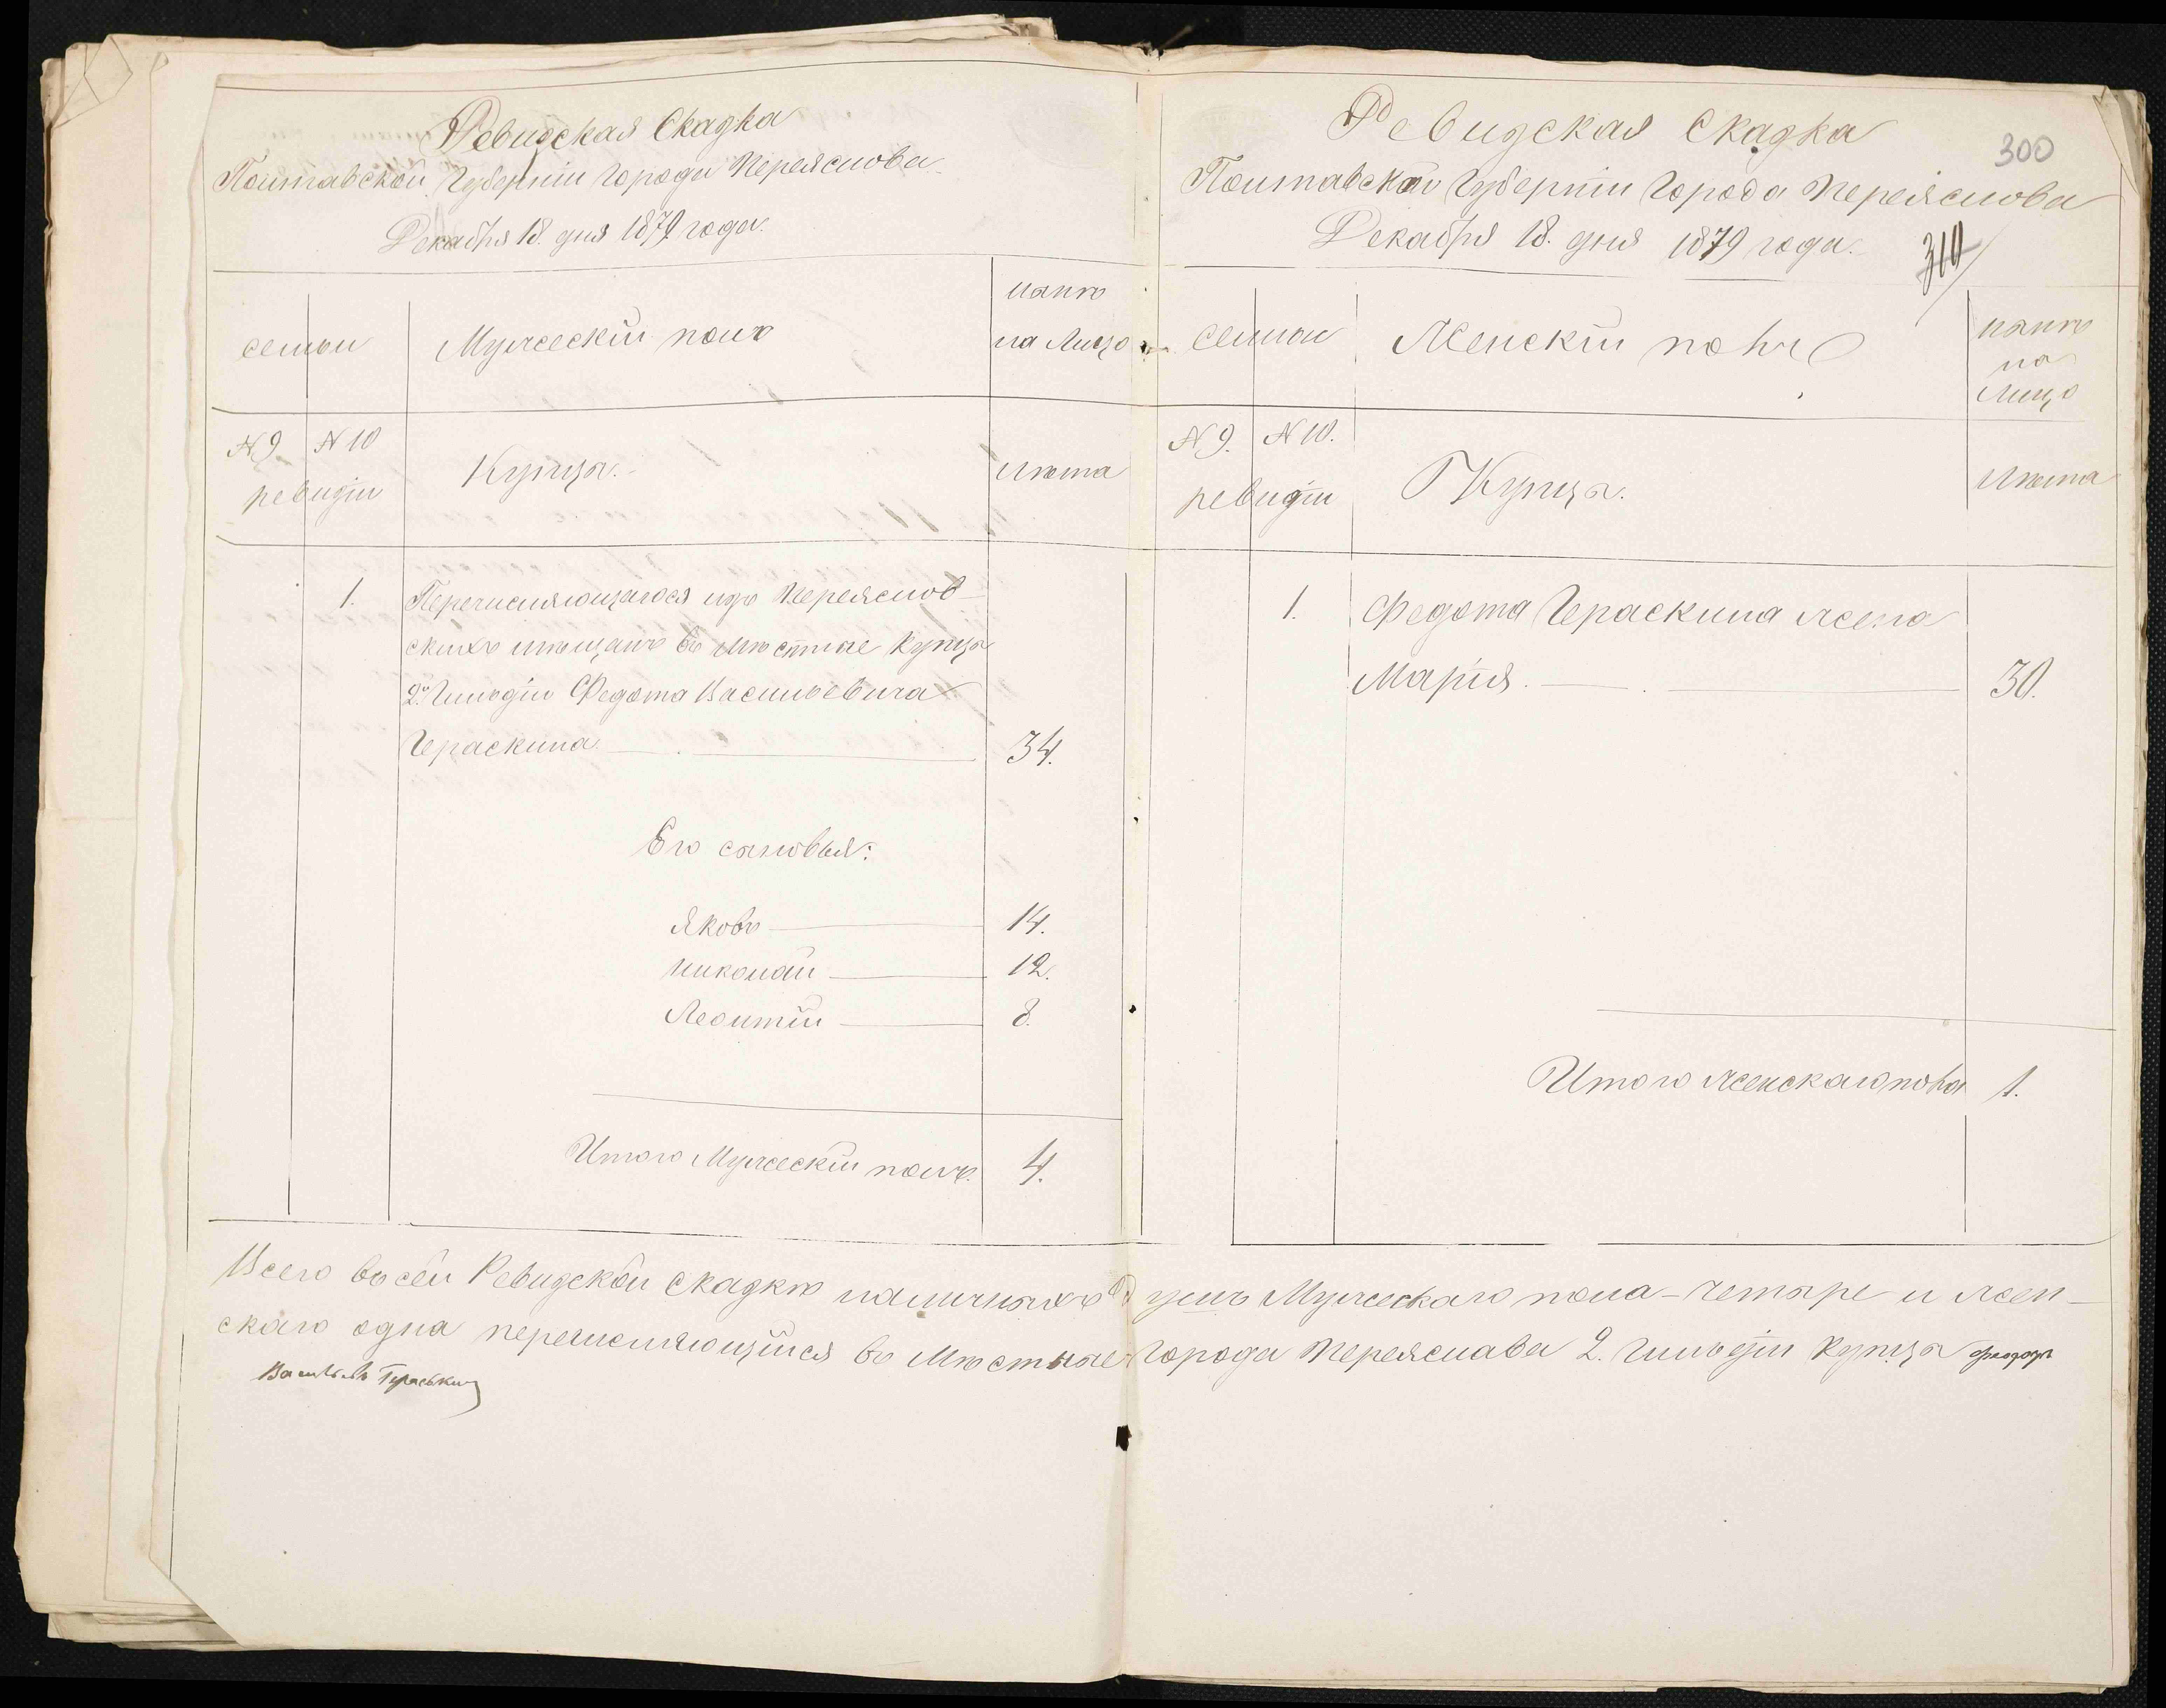 Ревизская Сказка
Полтавской Губерніи Города Переяслова
Декабря 18. дня 1879 года.
семьи
Мужескій полъ
нынѣ
на лицо
N 9
N 10
ревизіи
Купца.
Лѣта
1.
Перечисляющагося изъ Переяслов-
скихъ мѣщанъ въ мѣстные Купца
2й Гильдіи Федота Васильевича
Гераскина
34.
Его сыновья:
Яковъ
14.
Николай
12.
Леонтій
8.
Итого Мужескій полъ.
4.
Ревизская Сказка
300
Полтавской Губерніи Города Переяслова
Декабря 18. дня 1879 года.
310
семьи
Женскій полъ
нынѣ
на
лицо
N 9.
N 10.
ревизіи
Купца.
Лѣта
1.
Федота Гераскина жена
Марія.
30.
Итого женскаго пола
1.
Всего въ сей Ревизской сказкѣ наличныхъ душъ Мужескаго пола - четыре и жен-
скаго одна перечисляющійся въ мѣстные Города Переяслава 2. Гильдіи Купца
Васильевъ Гераськин